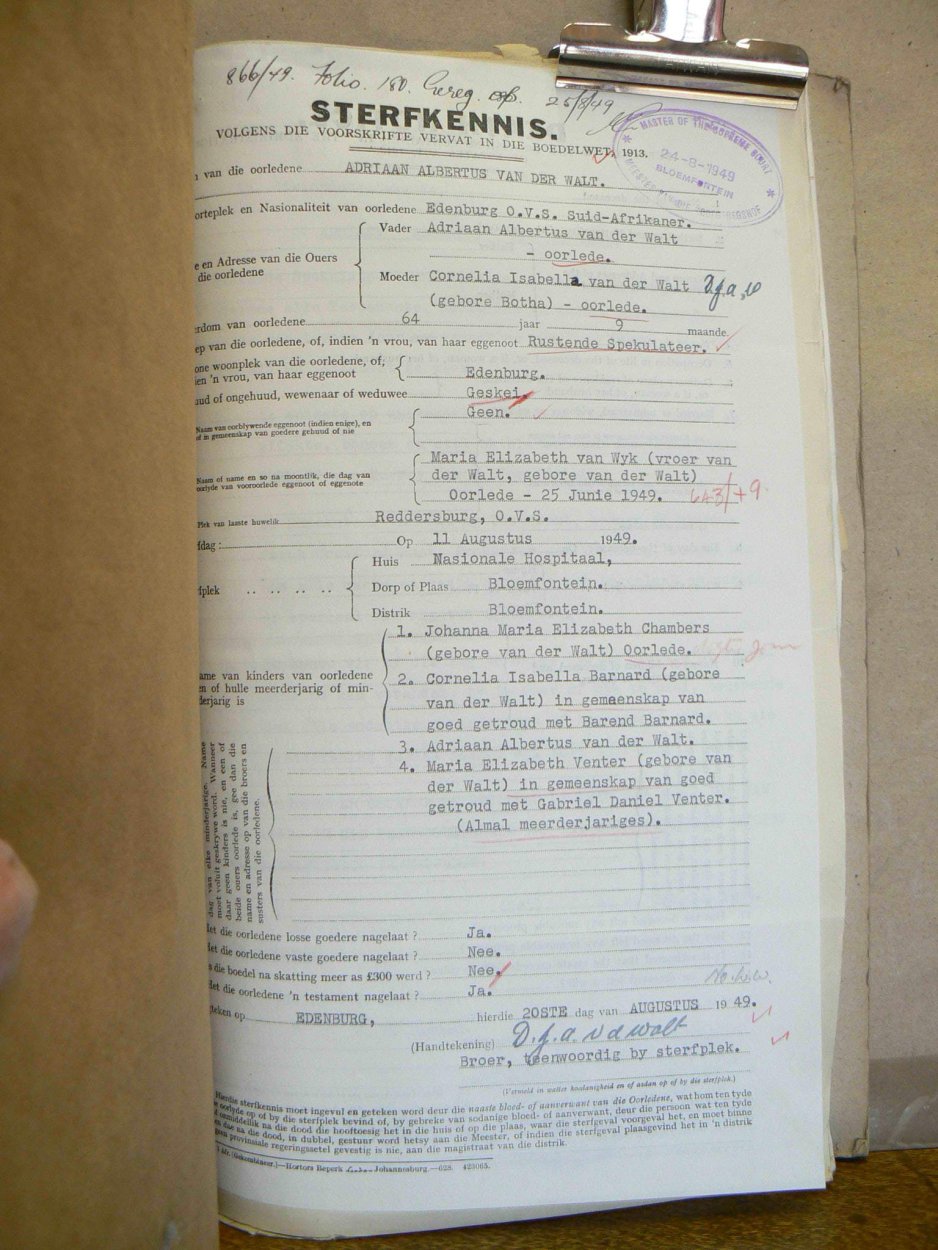 866/49. Folio. 180. Gereg. op. 25/8/49
STERFKENNIS.
VOLGENS DIE VOORSKRIFTE VERVAT IN DIE BOEDELWET, 1913.
MASTER OF THE SUPREME COURT
24-8-1949
BLOEMFONTEIN
van die oorledene ADRIAAN ALBERTUS VAN DER WALT.
orteplek en Nasionaliteit van oorledene Edenburg O.V.S. Suid-Afrikaner.
e en Adresse van die Ouers
die oorledene
Vader Adriaan Albertus van der Walt
- oorlede.
Moeder Cornelia Isabella van der Walt
(gebore Botha) - oorlede.
rdom van oorledene 64 jaar 9 maande.
ep van die oorledene, of, indien 'n vrou, van haar eggenoot Rustende Spekulateer.
one woonplek van die oorledene, of,
ien 'n vrou, van haar eggenoot
Edenburg.
uud of ongehuud, wewenaar of weduwee Geskei.
Naam van oorblywende eggenoot (indien enige), en
of in gemeenskap van goedere gehuud of nie
Geen.
Naam of name en so na moontlik, die dag van
oorlyde van vooroorlede eggenoot of eggenote
Maria Elizabeth van Wyk (vroer van
der Walt, gebore van der Walt)
Oorlede - 25 Junie 1949. 643/49.
Plek van laaste huwelik Reddersburg, O.V.S.
fdag: Op 11 Augustus 1949.
fplek .. .. .. ..
Huis Nasionale Hospitaal,
Dorp of Plaas Bloemfontein.
Distrik Bloemfontein.
ame van kinders van oorledene
en of hulle meerderjarig of min-
derjarig is
1. Johanna Maria Elizabeth Chambers
(gebore van der Walt) Oorlede.
2. Cornelia Isabella Barnard (gebore
van der Walt) in gemeenskap van
goed getroud met Barend Barnard.
3. Adriaan Albertus van der Walt.
4. Maria Elizabeth Venter (gebore van
der Walt) in gemeenskap van goed
getroud met Gabriel Daniel Venter.
(Almal meerderjariges).
dag van elke minderjarige. Name
moet voluit geskrywe word. Wanneer
daar geen kinders is nie, en een of
beide ouers oorlede is, gee dan die
name en adresse op van die broers en
susters van die oorledene.
Het die oorledene losse goedere nagelaat? Ja.
Het die oorledene vaste goedere nagelaat? Nee.
s die boedel na skatting meer as £300 werd? Nee.
Het die oorledene 'n testament nagelaat? Ja.
teken op EDENBURG, hierdie 20STE dag van AUGUSTUS 1949.
(Handtekening) D.J.A. vd walt
Broer, teenwoordig by sterfplek.
(Vermeld in watter hoedanigheid en of aldan op of by die sterfplek.)
Hierdie sterfkennis moet ingevul en geteken word deur die naaste bloed- of aanverwant van die Oorledene, wat hom ten tyde
oorlyde op of by die sterfplek bevind of, by gebreke van sodanige bloed- of aanverwant, deur die persoon wat ten tyde
onmiddellik na die dood die hooftoesig het in die huis of op die plaas, waar die sterfgeval voorgeval het, en moet binne
dae na die dood, in dubbel, gestuur word hetsy aan die Meester, of indien die sterfgeval plaasgevind het in 'n distrik
geen provinsiale regeringsetel gevestig is nie, aan die magistraat van die distrik.
Afr. (Gekombineer.)—Hortors Beperk Johannesburg.—628. 423065.